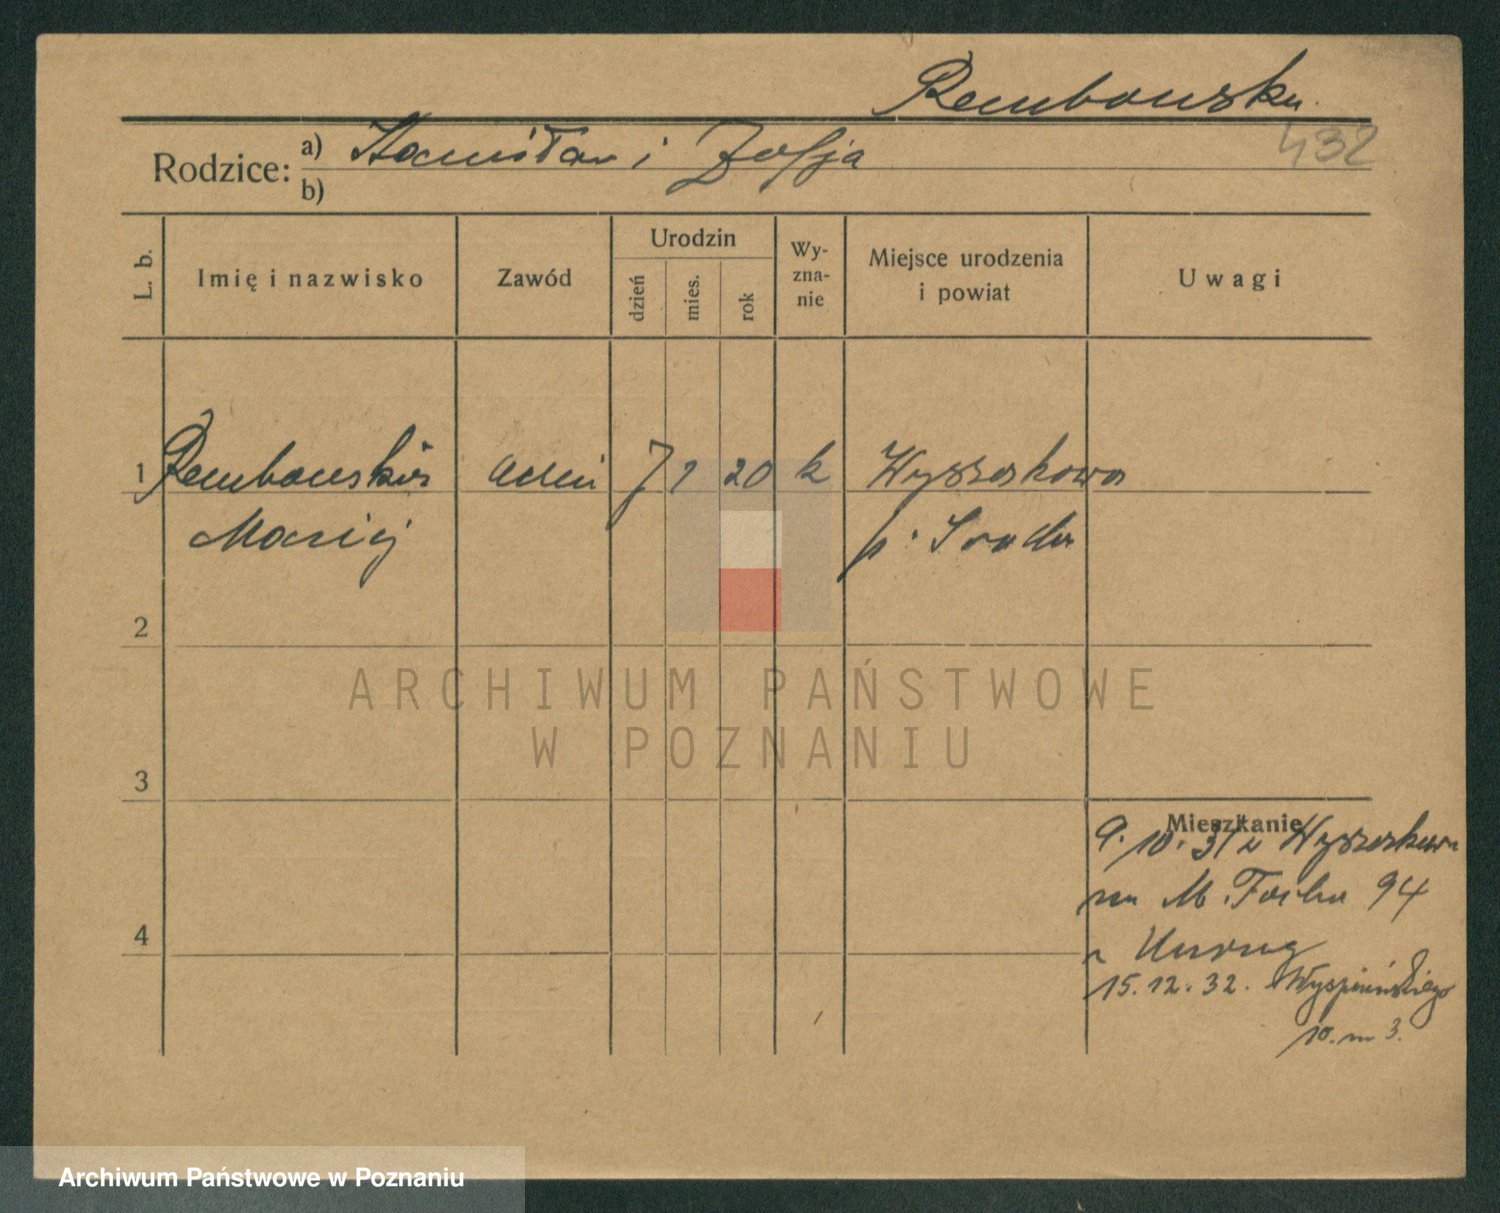 Rembowski
432
Rodzice: a) Stanisław i Zofja
b)
L. b.
Imię i nazwisko
Zawód
Urodzin
dzień
mies.
rok
Wy-
zna-
nie
Miejsce urodzenia
i powiat
Uwagi
1 Rembowski uczeń 7 1 20 k Wyszakowo
Maciej p. Środa
2
3
4
Mieszkanie
9. 10. 31 z Wyszakowa
na M. Focha 94
u Unrug
15. 12. 32. Wyspiańskiego
10. m 3.
ARCHIWUM PAŃSTWOWE
W POZNANIU
Archiwum Państwowe w Poznaniu